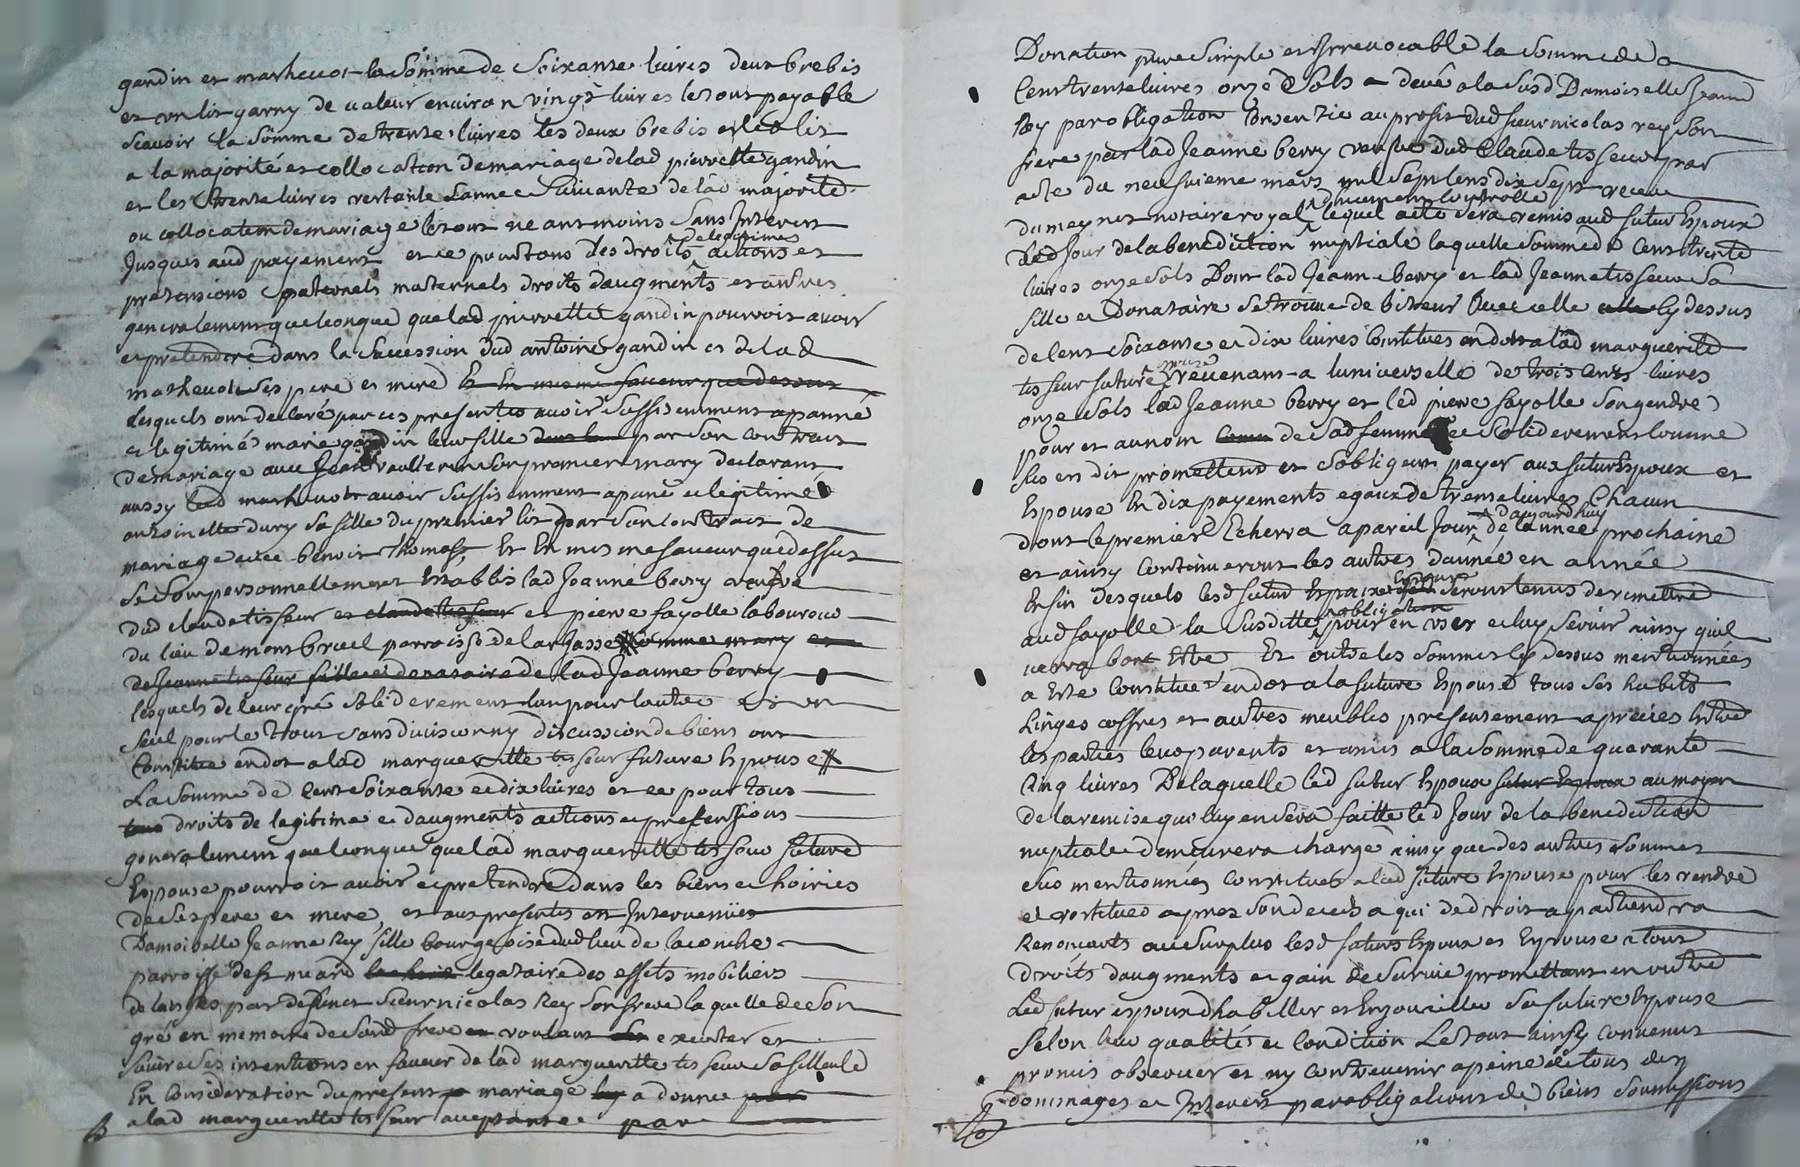 gandin et mathevot la Somme de Soixante livres deux brebis
et un lit garny de valeur environ vingt livres le tout payable
scavoir la Somme de trente livres les deux brebis et led lit
a la majorité et collocation de mariage de lad pierrette gandin
et les trente livres restante Lannee Suivante de lad majorité
ou collocation de mariage le tout neantmoins Sans Interest
Jusques aud payement et ce pour tous les droits de legitimes actions et
pretensions paternels maternels droits daugments et autres
generalement quelconque que lad pierrette gandin pourroit avoir
et pretendre dans la Succession dud antoine gandin et de lad
mathevot Ses pere et mere Et En mesme faveur que dessus
Lesquels ont declaré par ces presentes avoir Suffisemment apanné
et legitimé marie gandin leur fille dans la par Son contract
de mariage avec Jean vaultier en Son premier mary declarant
aussy lad mathevot avoir Suffisemment apané et legitimé
antoinette dury Sa fille du premier lit par Son contract de
mariage avec benoit Thomas, Et En mesme faveur que dessus
Se Sont personnellement Establis lad Jeanne berry veufve
dud claude tisseur et claude tisseur et pierre fayolle laboureur
du lieu de montbruel parroisse de larjasse comme mary et
de Jeanne tisseur fille et donataire de lad Jeanne berry
lesquels de leur gré Solideremment lun pour lautre et un
Seul pour le tout Sans division ny discussion de biens ont
Constitue en dot a lad margueritte tisseur future Epouse
La Somme de Cent Soixante et dix livres et ce pour tous
tous droits de legitime et daugments actions et pretensions
generalement quelconque que lad margueritte tisseur future
Espouse pourroit avoir et pretendre dans les biens et hoiries
de Ses pere et mere, et aux presentes est Intervenüe
Damoiselle Jeanne Rey fille bourgeoise dud lieu de laconche
parroisse de St medard legataire des effets mobiliers
de laisses par deffunct Sieur nicolas Rey Son frere laquelle de Son
gré en memoire de Sond frere et voulant executer et
Suivre Ses intentions en faveur de lad margueritte tisseur Sa filleule
En Consideration du present mariage a donné par
a lad margueritte tisseur acceptante par
Donation pure Simple et Irrevocable la Somme de
Cent trente livres onze Sols deue a la Susd Damoiselle Jeanne
Rey par obligation consentie au profit dud Sieur nicolas rey Son
frere par lad Jeanne berry veufve dud Claude tisseur par
acte du neufvieme mars mil Sept cens dix Sept receu
dumeynet notaire royal duement controllé lequel acte Sera remis aud futur Espoux
Led Jour de la benediction nuptiale laquelle Somme de Cent trente
livres onze Sols Dont lad Jeanne berry et lad Jeanne tisseur Sa
fille et Donataire Se trouve debiteur Avec celle cy dessus
de Cent Soixante et dix livres Constituées en dot a lad marguerite
tisseur future revenant a luniverselle de trois Cents livres
onze Sols lad Jeanne berry et led pierre fayolle Son gendre
pour et au nom de Sad femme et Solideremment comme
Sus en dit promettent et Sobligent payer aux futur Espoux et
Espouse En dix payements egaux de trente livres Chacun
dont le premier Echerra a pareil Jour daujourdhuy de lannee prochaine
et ainsy Continueront les autres dannée en année
En fin desquels lesd futur Espoux Espouse Seront tenus de remettre
aud fayolle la Susditte obligation pour en user et luy Servir ainsy quil
verra bon Estre Et outre les Sommes cy dessus mentionnées
a Esté Constitué en dot a la future Espouse tous Ses habits
Linges coffres et autres meubles presentement apreciés Entre
les parties leurs parents et amis a la Somme de quarante
Cinq livres De laquelle led futur Espoux futur Espoux au moyen
de la remise qui luy en Sera faitte led Jour de la benediction
nuptiale demeurera chargé ainsy que des autres Sommes
Sus mentionnées Constitués a lad future Espouse pour les rendre
et restituer apres Son deceds a qui de droit apartiendra
Renonçants au Surplus lesd futurs Espoux et Espouse a tous
droits daugments et gain de Survie promettant en outre
Led futur espoux dhabiller et Enjoailler Sa future Espouse
Selon leur qualité et condition Le tout ainsy convenus
promis observer et ny contrevenir a peine de tous despens
dommages et Interest par obligations de biens Soumissions